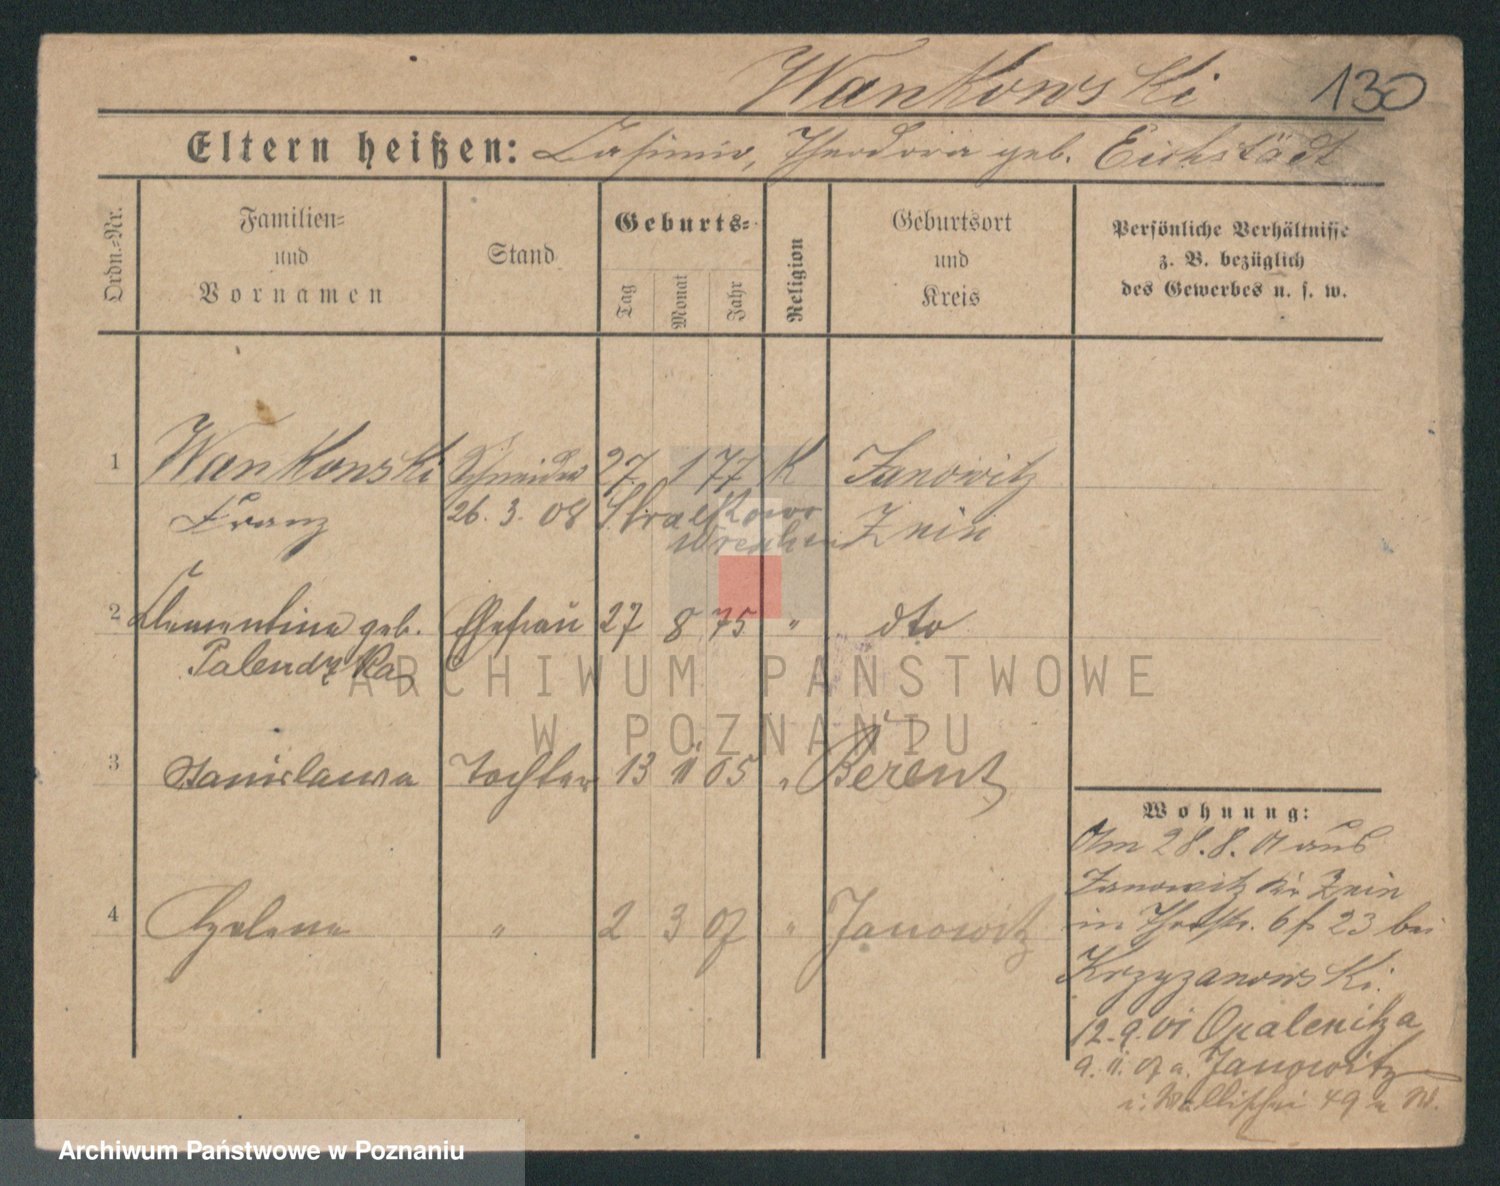 Wankowski 130
Eltern heißen: Casimir, Theodora geb. Eichstädt
Ordn.=Nr.
Familien=
und
Vornamen
Stand
Geburts=
Tag
Monat
Jahr
Religion
Geburtsort
und
Kreis
Persönliche Verhältnisse
z. B. bezüglich
des Gewerbes u. s. w.
1 Wankowski Schneider 27 1 77 K Janowitz
Franz 26. 3. 08 Stralkowo Znin
Wreschen
2 Clementina geb. Ehefrau 27 8 75 " dto
Palendzka
3 Stanislawa Tochter 13 11 05 " Berent
4 Helena " 2 3 07 " Janowitz
Wohnung:
Am 28.8.01 aus
Janowitz Kr Znin
in 23 bei
Krzyzanowski.
12.9.01 Opalenitza
9. 11. 07 a. Janowitz
i. Wallischei 49 a W.
ARCHIWUM PAŃSTWOWE
W POZNANIU
Archiwum Państwowe w Poznaniu